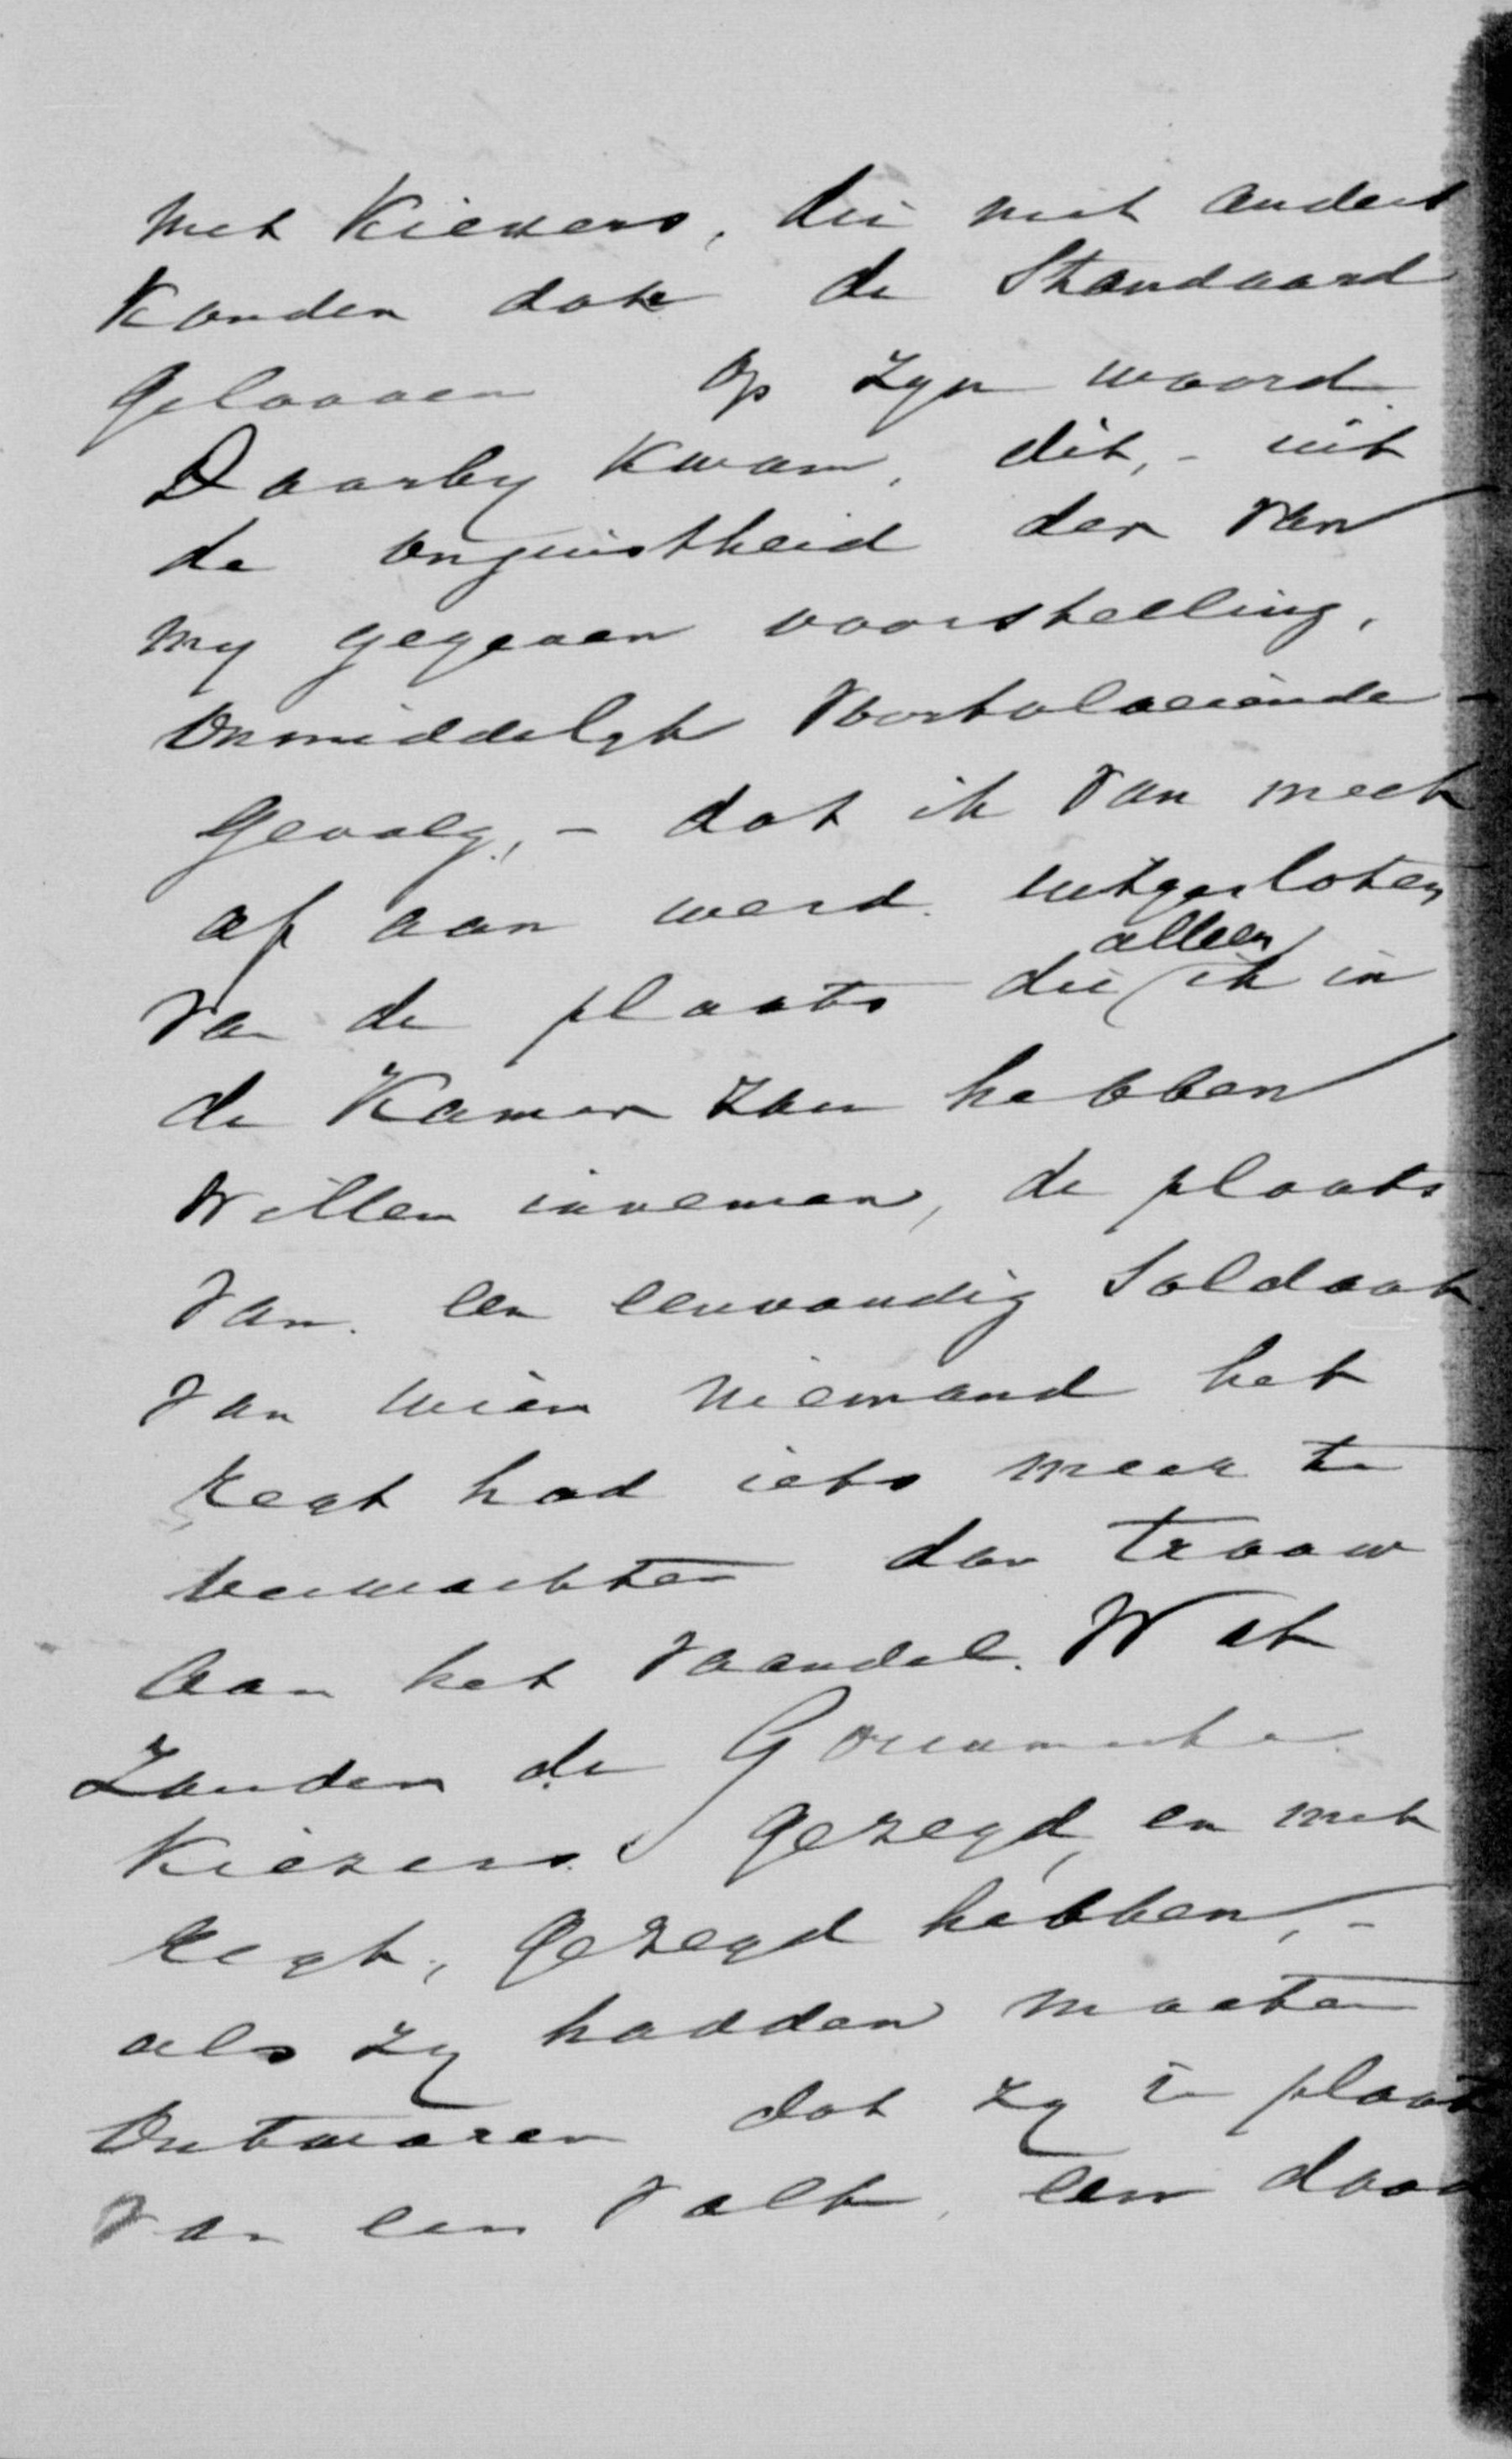 met Kiezers, die niet anders
konden dan de Standaard
gelooven op zyn woord.
Daarby kwam, dit, - uit
de onjuistheid der van
my gegeven voorstelling,
onmiddelyk voortvloeiende
gevolg, - dat ik van meet
af aan werd uitgesloten
van de plaats die alleen ik in
de Kamer zou hebben
willen innemen, de plaats
van een eenvoudig Soldaat
van wien niemand het
regt had iets meer te
verwachten dan trouw
aan het vaandel. Wat
Zouden de
Kiezers gezegd, en met
regt, gezegd hebben, -
als zy hadden moeten
Ontwaren dat zy in plaats
van een Valk, een